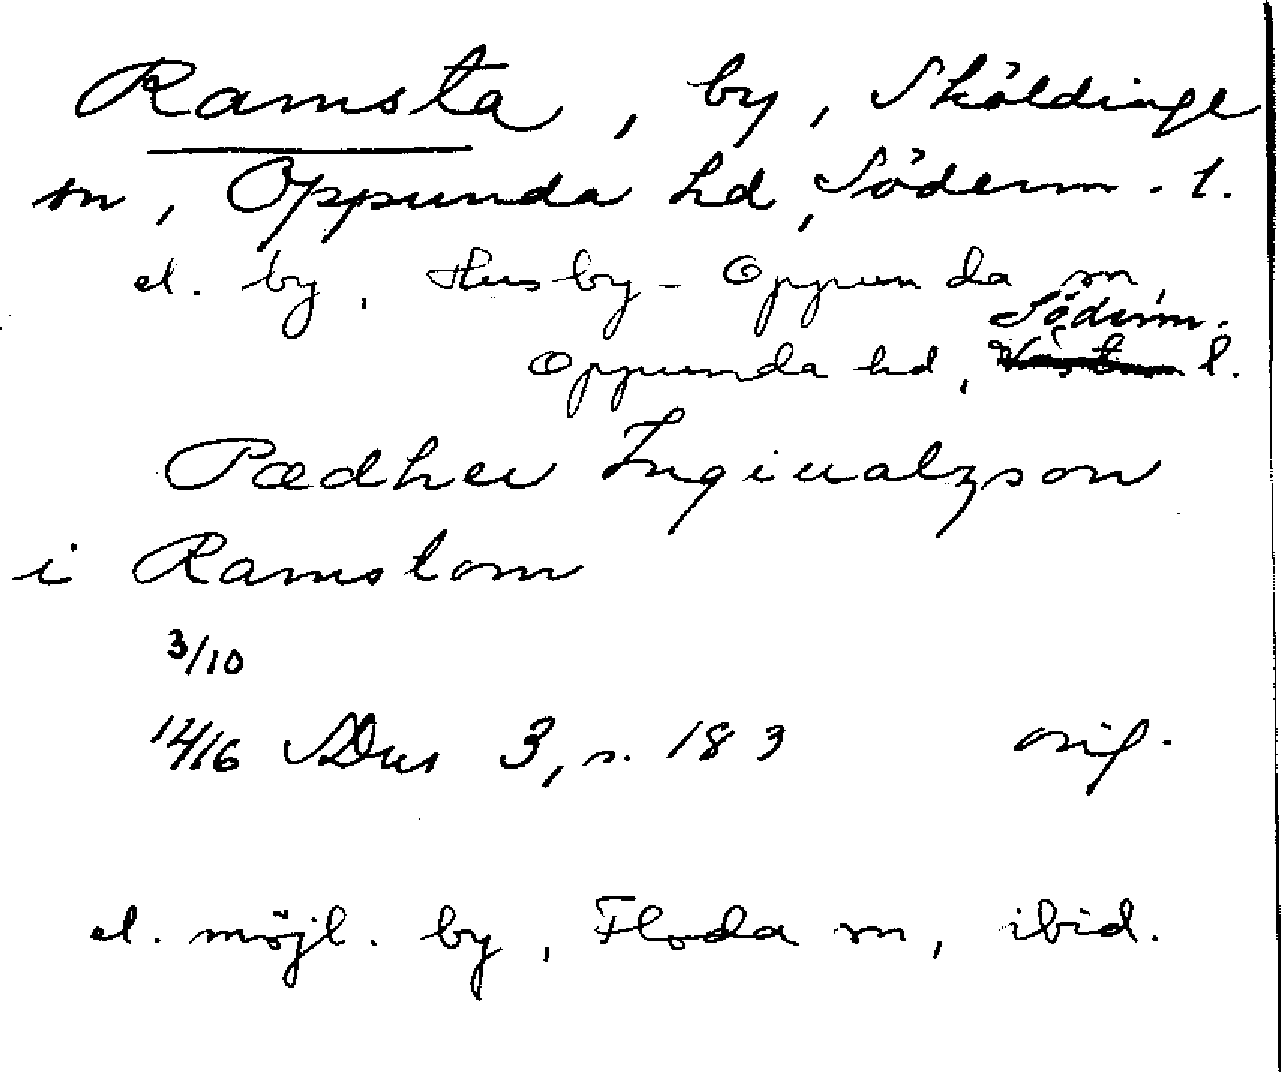 Ramsta, by, Sköldinge
sn, Oppunda hd, Söderm. l.
el. by, Husby-Oppunda sn,
Söderm.
Oppunda hd, l.
Pædher Ingiualzson
i Ramstom
3/10
1416 SDns 3, s. 183 orig.
el. möjl. by, Floda sn, ibid.